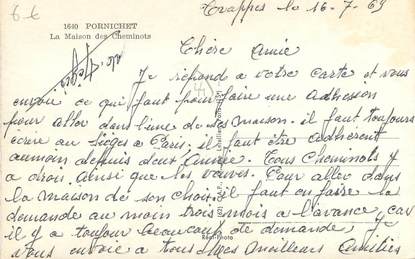 66
Trappes le 16-7-69
1640 PORNICHET
La Maison des Cheminots
Chère Amie
Je répond a votre carte et vous
envoie ce qu'il faut pour faire une adhésion
pour aller dans l'une de ses maison. il faut toujours
écrire au Siège a Paris. il faut être adhérent
au moin depuis deux Année. Tous Cheminots y
a droit, ainsi que les veuves. Pour aller dans
la maison de son choix. il faut en faire la
demande au moin trois mois a l'avance, car
il y a toujour beaucoup de demande, Je
Réel-Photo
vous envoie a tous Mes meilleurs Amitiés